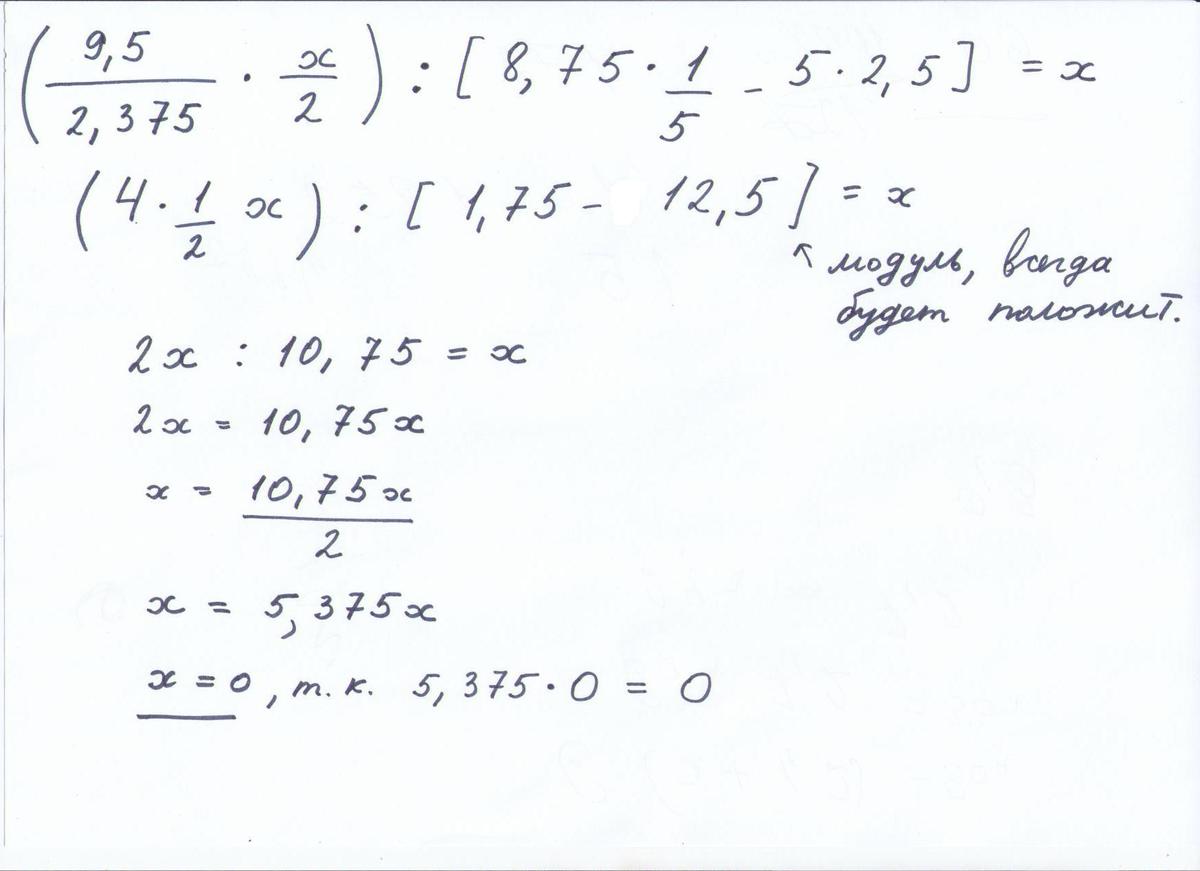 (9,5/2,375 · x/2) : [8,75 · 1/5 - 5 · 2,5] = x
(4 · 1/2 x) : [1,75 - 12,5] = x
↖ модуль, всегда
будет положит.
2x : 10,75 = x
2x = 10,75x
x = 10,75x/2
x = 5,375x
x = 0, т.к. 5,375 · 0 = 0